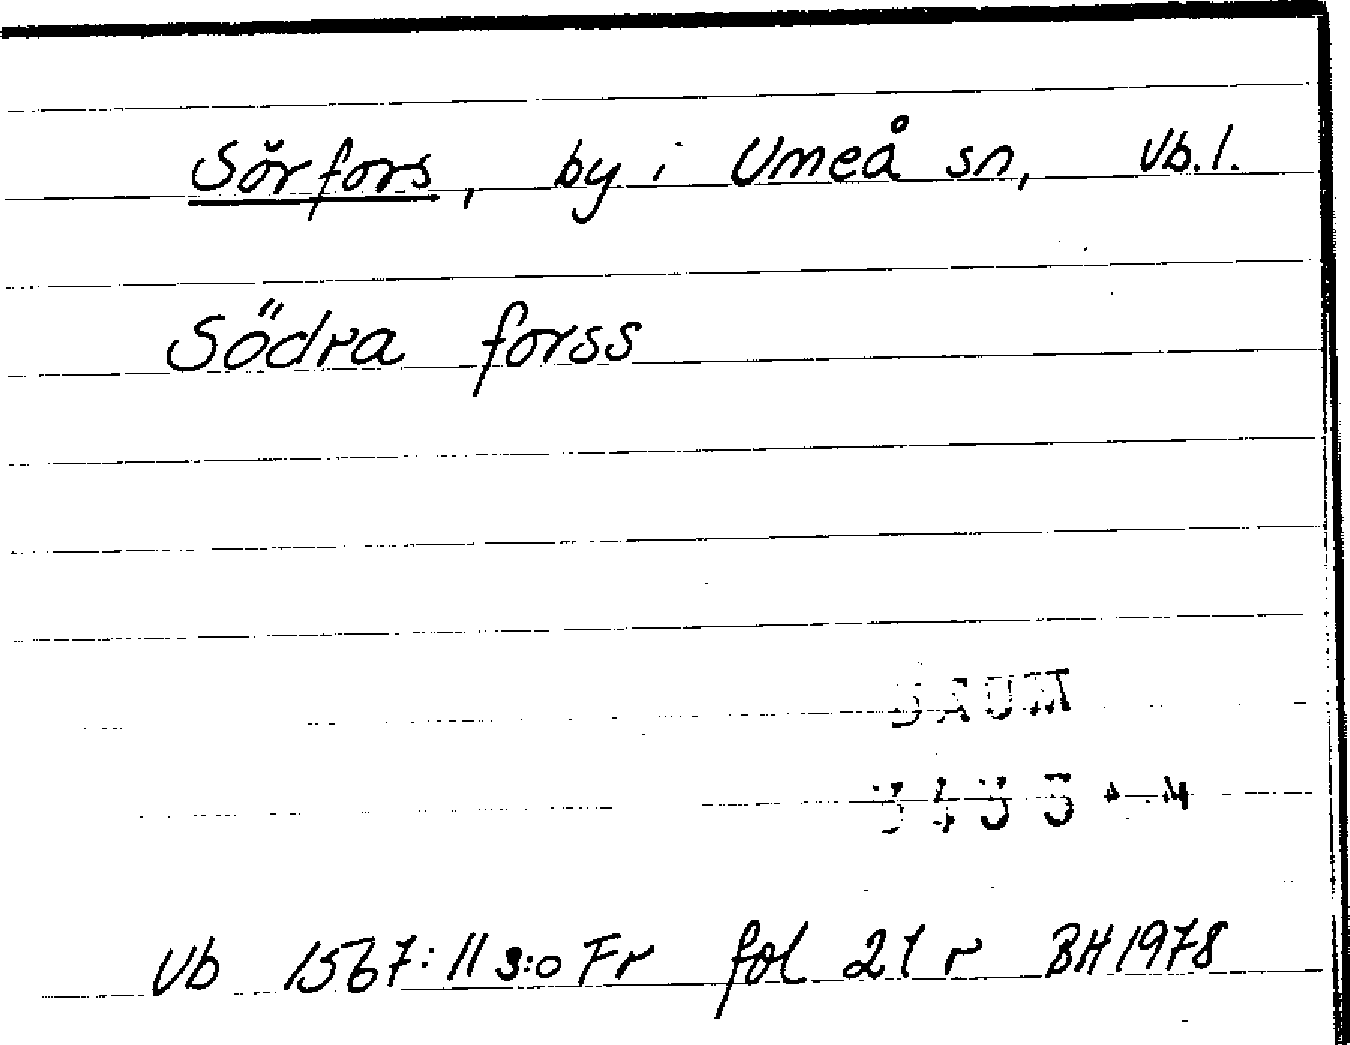 Sörfors, by i Umeå sn, Vb.l.
Södra forss
DAUM
Vb 1567:11 s:o Fr fol 21 r BH 1978